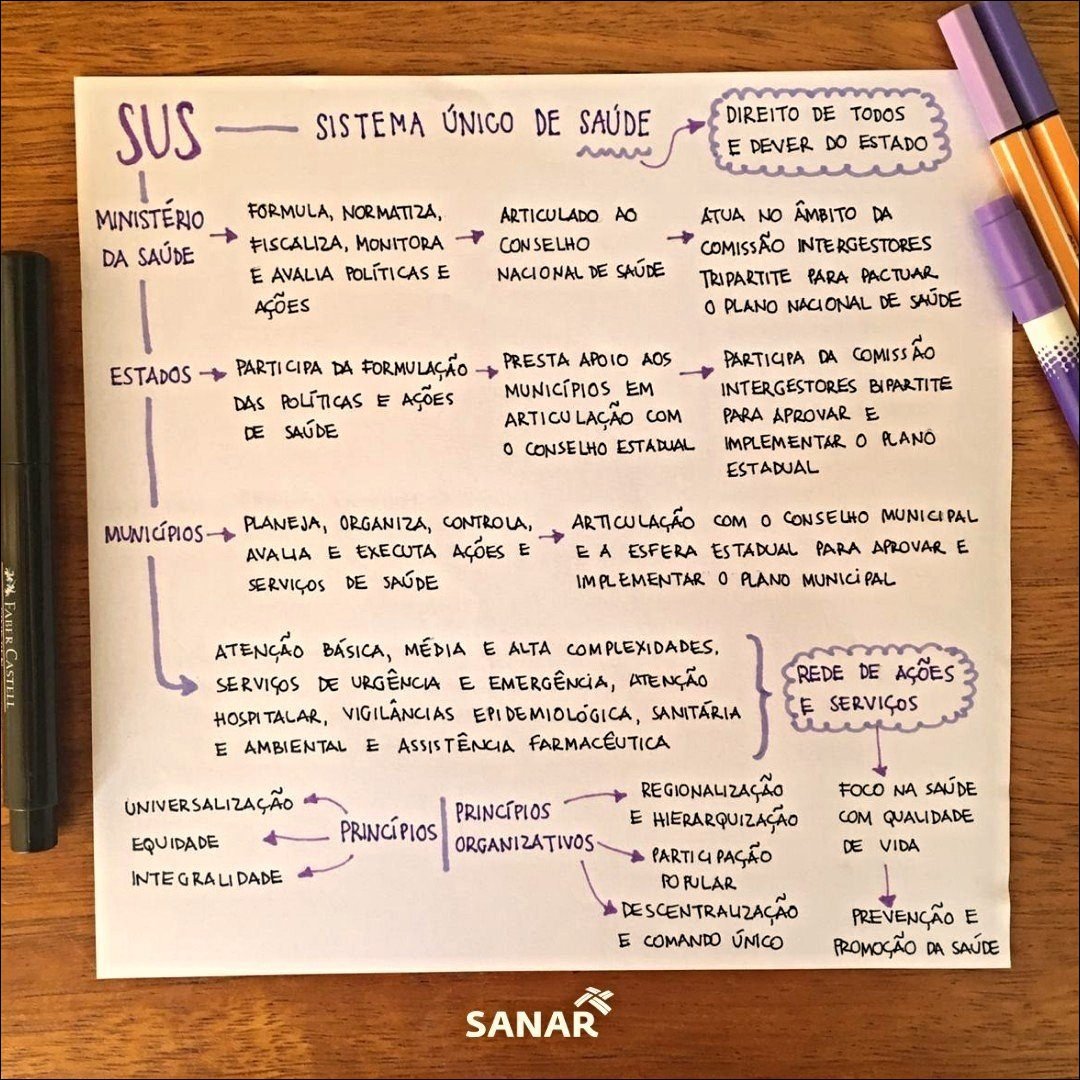 SUS — SISTEMA ÚNICO DE SAÚDE
DIREITO DE TODOS
E DEVER DO ESTADO
MINISTÉRIO
DA SAÚDE
FORMULA, NORMATIZA,
FISCALIZA, MONITORA
E AVALIA POLÍTICAS E
AÇÕES
ARTICULADO AO
CONSELHO
NACIONAL DE SAÚDE
ATUA NO ÂMBITO DA
COMISSÃO INTERGESTORES
TRIPARTITE PARA PACTUAR
O PLANO NACIONAL DE SAÚDE
ESTADOS
PARTICIPA DA FORMULAÇÃO
DAS POLÍTICAS E AÇÕES
DE SAÚDE
PRESTA APOIO AOS
MUNICÍPIOS EM
ARTICULAÇÃO COM
O CONSELHO ESTADUAL
PARTICIPA DA COMISSÃO
INTERGESTORES BIPARTITE
PARA APROVAR E
IMPLEMENTAR O PLANO
ESTADUAL
MUNICÍPIOS
PLANEJA, ORGANIZA, CONTROLA,
AVALIA E EXECUTA AÇÕES E
SERVIÇOS DE SAÚDE
ARTICULAÇÃO COM O CONSELHO MUNICIPAL
E A ESFERA ESTADUAL PARA APROVAR E
IMPLEMENTAR O PLANO MUNICIPAL
ATENÇÃO BÁSICA, MÉDIA E ALTA COMPLEXIDADES,
SERVIÇOS DE URGÊNCIA E EMERGÊNCIA, ATENÇÃO
HOSPITALAR, VIGILÂNCIAS EPIDEMIOLÓGICA, SANITÁRIA
E AMBIENTAL E ASSISTÊNCIA FARMACÊUTICA
REDE DE AÇÕES
E SERVIÇOS
FOCO NA SAÚDE
COM QUALIDADE
DE VIDA
PREVENÇÃO E
PROMOÇÃO DA SAÚDE
PRINCÍPIOS
UNIVERSALIZAÇÃO
EQUIDADE
INTEGRALIDADE
PRINCÍPIOS
ORGANIZATIVOS
REGIONALIZAÇÃO
E HIERARQUIZAÇÃO
PARTICIPAÇÃO
POPULAR
DESCENTRALIZAÇÃO
E COMANDO ÚNICO
FABER CASTELL
SANAR